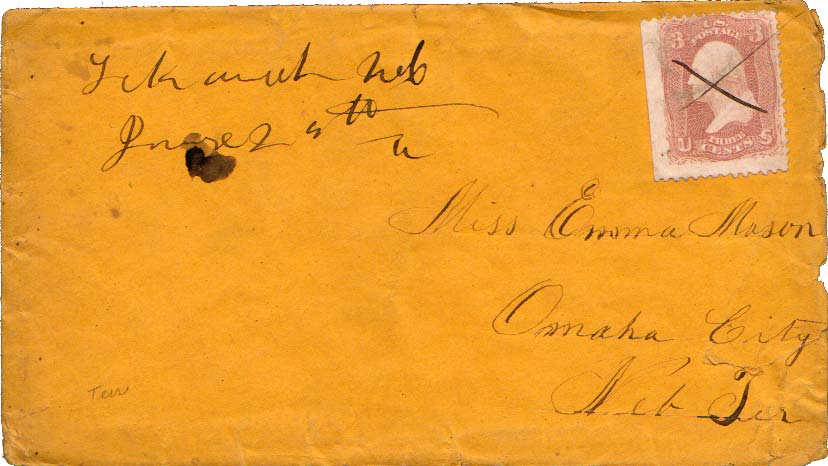 Tekamah Neb
June 2
U.S.
POSTAGE
3 3
U S
THREE
CENTS
Miss Emma Mason
Omaha City
Neb Ter
Terr